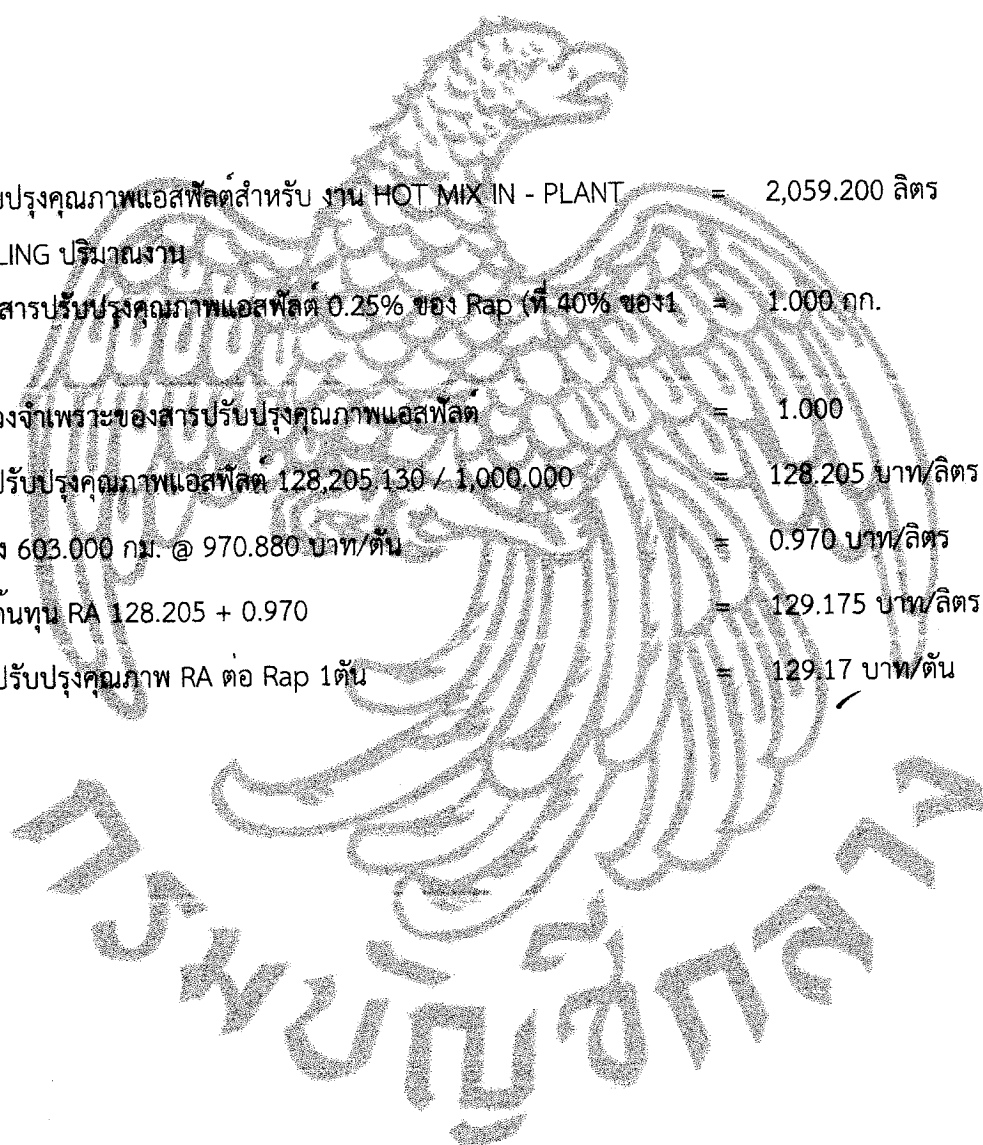 บปรุงคุณภาพแอสฟัลต์สำหรับ งาน HOT MIX IN - PLANT = 2,059.200 ลิตร
LING ปริมาณงาน
สารปรับปรุงคุณภาพแอสฟัลต์ 0.25% ของ Rap (ที่ 40% ของ1 = 1.000 กก.
วงจำเพราะของสารปรับปรุงคุณภาพแอสฟัลต์ = 1.000
ปรับปรุงคุณภาพแอสฟัลต์ 128,205.130 / 1,000.000 = 128.205 บาท/ลิตร
ง 603.000 กม. @ 970.880 บาท/ตัน = 0.970 บาท/ลิตร
้นทุน RA 128.205 + 0.970 = 129.175 บาท/ลิตร
ปรับปรุงคุณภาพ RA ต่อ Rap 1ตัน = 129.17 บาท/ตัน
กรมบัญชีกลาง